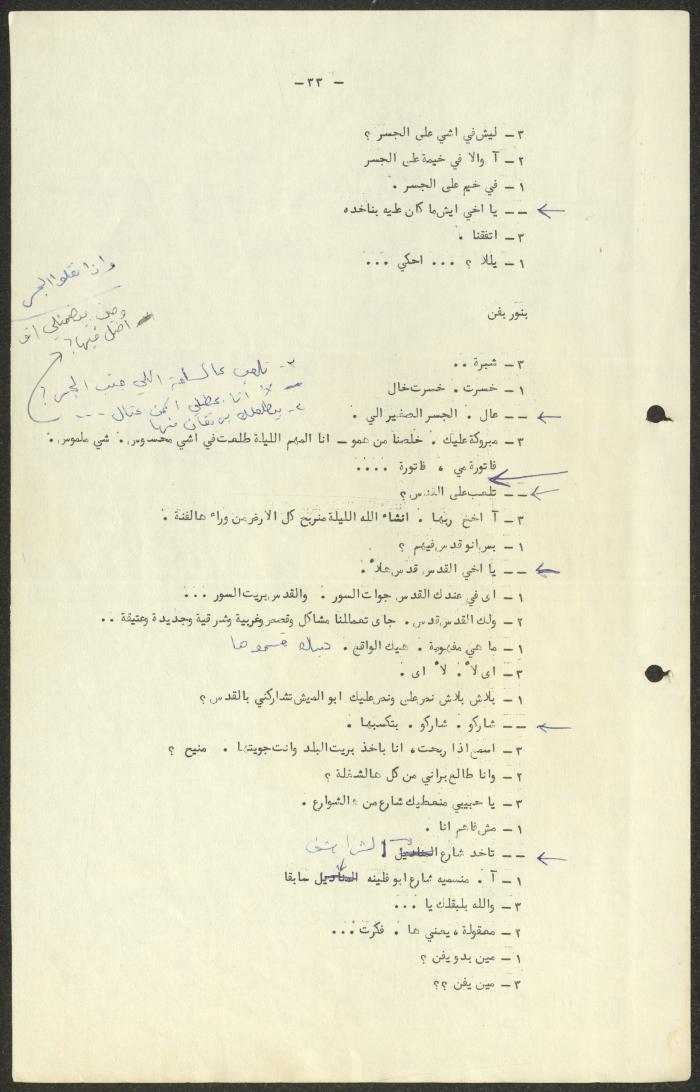 - ٣٣ -
٣ - ليش في اشي على الجسر ؟
٢ - آ والا في خيمة على الجسر
١ - في خيم على الجسر .
- - يا اخي ايش ما كان عليه بناخده
٣ - اتفقنا .
١ - يللا ؟ ... احكي ...
واذا نقلوا الجسر
بنور بفن
ومين بيضمنلي انو
اضل فيها ؟
٣ - شبرة ..
٣ - تلعب عالساحة اللي جنب الجسر ؟
١ - خسرت . خسرت خال
- - عال . الجسر الصغير الي .
٣ - مبروكة عليك . خلصنا من همو - انا المهم الليلة طلعت في اشي محسوس . شي ملموس .
فاتورة مي ، فاتورة ....
- - تلعب على القدس ؟
٣ - آ اخخ ربها . انشاء الله الليلة منربح كل الارض من وراء هالفنة .
١ - بس انو قدس فيهم ؟
- - يا اخي القدس قدس هلأ .
١ - اى في عندك القدس جوات السور . والقدس بريت السور ...
٢ - ولك القدس قدس . جاى تعمللنا مشاكل وقصص وغربية وشرقية وجديدة وعتيقة ..
١ - ما هي مفهومة . هيك الواقع . هيك قسموها
٣ - اى لأ . لأ اى .
١ - بلاش بلاش نص علي ونص عليك ابو العيش تشاركني بالقدس ؟
- - شاركو . شاركو . بتكسبها .
٣ - اسمع اذا ربحت ، انا باخذ بريت البلد وانت جويتها . منيح ؟
٢ - وانا طالع براني من كل هالشغلة ؟
٣ - يا حبيبي منعطيك شارع من هالشوارع .
١ - مش فاهم انا .
- - تاخد شارع
١ - آ . منسميه شارع ابو فلينه سابقا
٣ - والله بلبقلك يا ...
٢ - معقولة ، يعني ها . فكرت ...
١ - مين بدو يفن ؟
٣ - مين يفن ؟؟